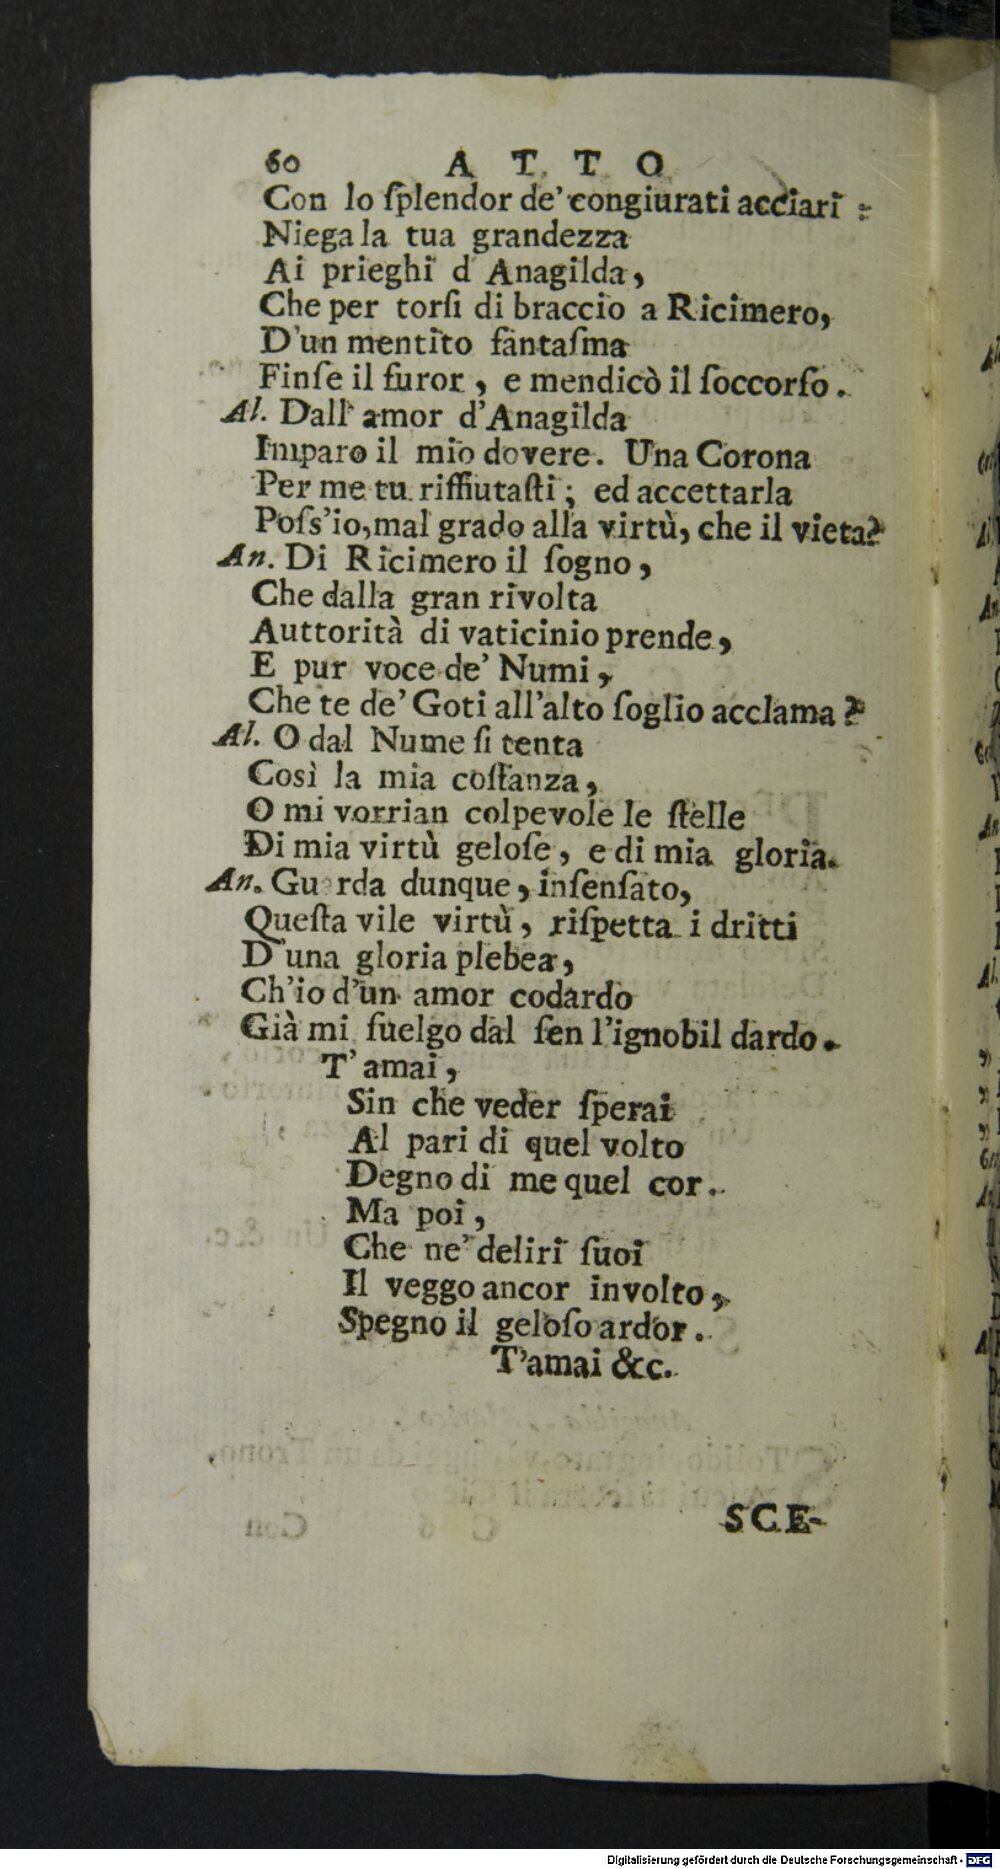 60 A T T O
Con lo ſplendor de' congiurati acciari :
Niega la tua grandezza
Ai prieghi d Anagilda,
Che per torſi di braccio a Ricimero,
D'un mentito fantaſma
Finſe il furor, e mendicò il ſoccorſo.
Al. Dall' amor d'Anagilda
Imparo il mio dovere. Una Corona
Per me tu riffiutaſti; ed accettarla
Poſs'io, mal grado alla virtù, che il vieta?
An. Di Ricimero il ſogno,
Che dalla gran rivolta
Auttorità di vaticinio prende,
E pur voce de' Numi,
Che te de' Goti all'alto ſoglio acclama?
Al. O dal Nume ſi tenta
Così la mia coſtanza,
O mi vorrian colpevole le ſtelle
Di mia virtù geloſe, e di mia gloria.
An. Gu rda dunque, inſenſato,
Queſta vile virtù, riſpetta i dritti
D'una gloria plebea,
Ch'io d'un amor codardo
Già mi ſuelgo dal ſen l'ignobil dardo.
T'amai,
Sin che veder ſperai
Al pari di quel volto
Degno di me quel cor.
Ma poi,
Che ne' deliri ſuoi
Il veggo ancor involto,
Spegno il geloſo ardor.
T'amai &c.
SCE-
Digitalisierung gefördert durch die Deutsche Forschungsgemeinschaft - DFG